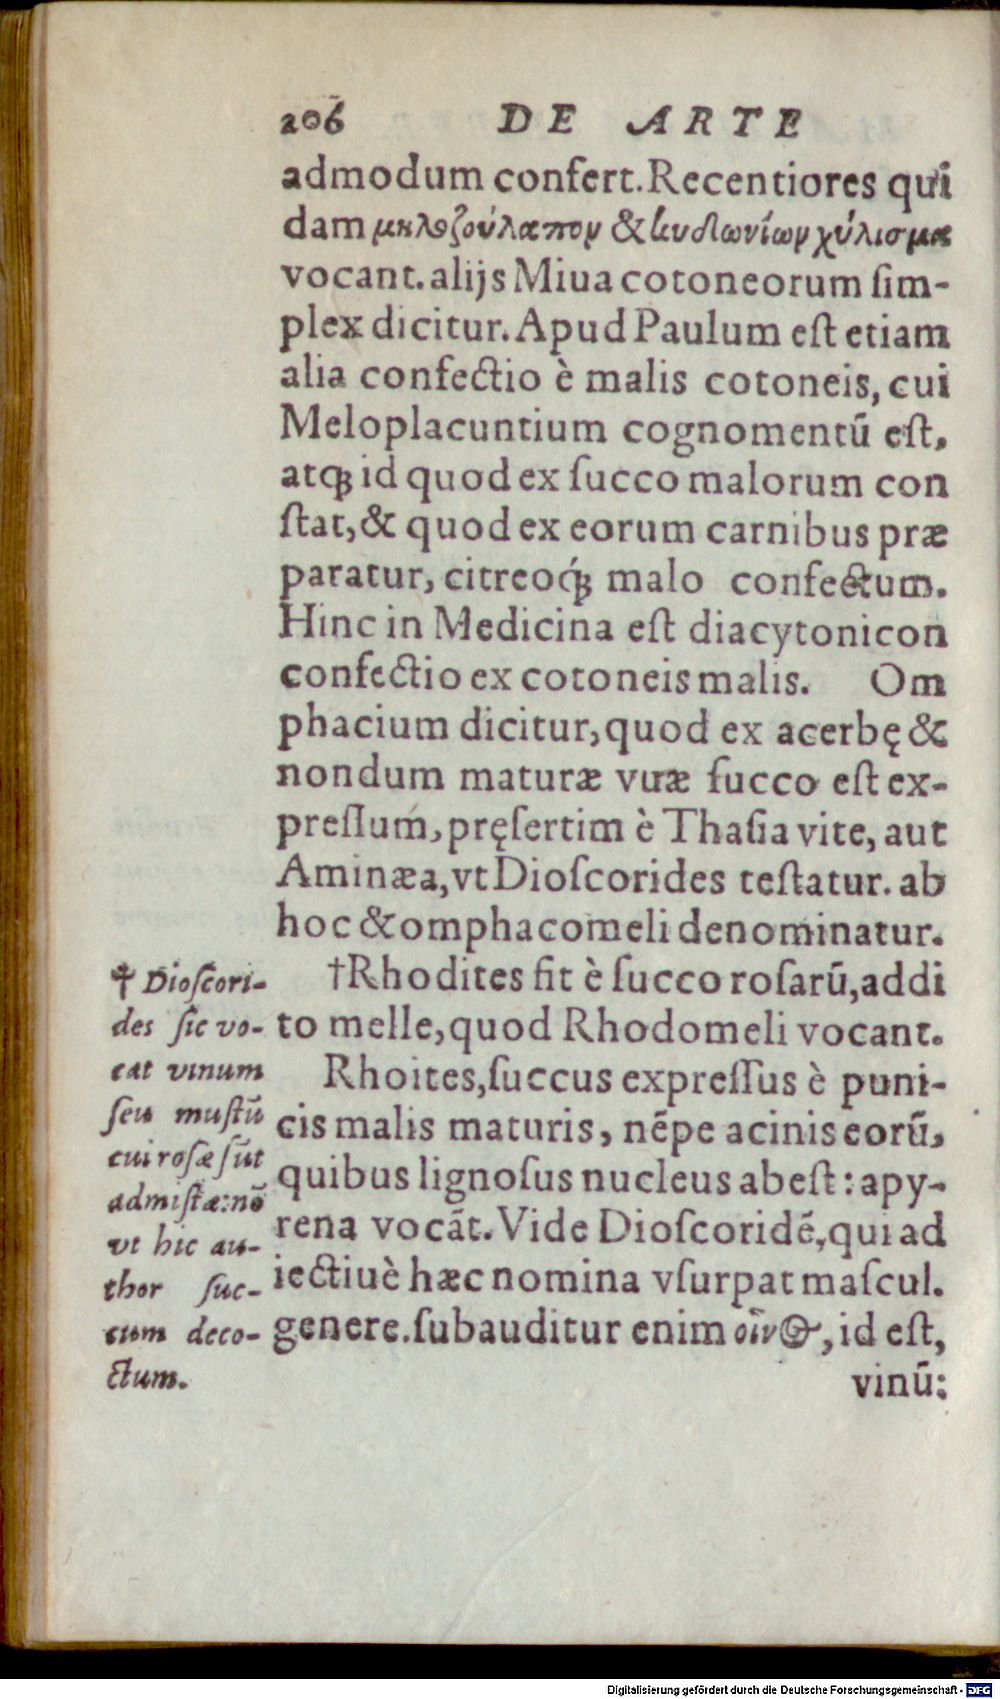 206 DE ARTE
admodum confert. Recentiores qui
dam μηλοζούλαπον & κυδωνίων χύλισμα
vocant. alijs Miua cotoneorum ſim-
plex dicitur. Apud Paulum eſt etiam
alia confectio è malis cotoneis, cui
Meloplacuntium cognomentū eſt,
atq̃ id quod ex ſucco malorum con
ſtat, & quod ex eorum carnibus præ
paratur, citreoq́ malo confectum.
Hinc in Medicina eſt diacytonicon
confectio ex cotoneis malis. Om
phacium dicitur, quod ex acerbę &
nondum maturæ vuæ ſucco eſt ex-
preſſum, pręſertim è Thaſia vite, aut
Aminæa, vt Dioſcorides teſtatur. ab
hoc & omphacomeli denominatur.
†Rhodites fit è ſucco roſarū, addi
to melle, quod Rhodomeli vocant.
Rhoites, ſuccus expreſſus è puni-
cis malis maturis, nēpe acinis eorū,
quibus lignoſus nucleus abeſt: apy-
rena vocāt. Vide Dioſcoridē, qui ad
iectiuè hæc nomina vſurpat maſcul.
genere. ſubauditur enim οἶνος, id eſt,
vinū:
† Dioſcori-
des ſic vo-
cat vinum
ſeu muſtū
cui roſæ ſūt
admiſtæ: nō
vt hic au-
thor ſuc-
cum deco-
ctum.
Digitalisierung gefördert durch die Deutsche Forschungsgemeinschaft - DFG